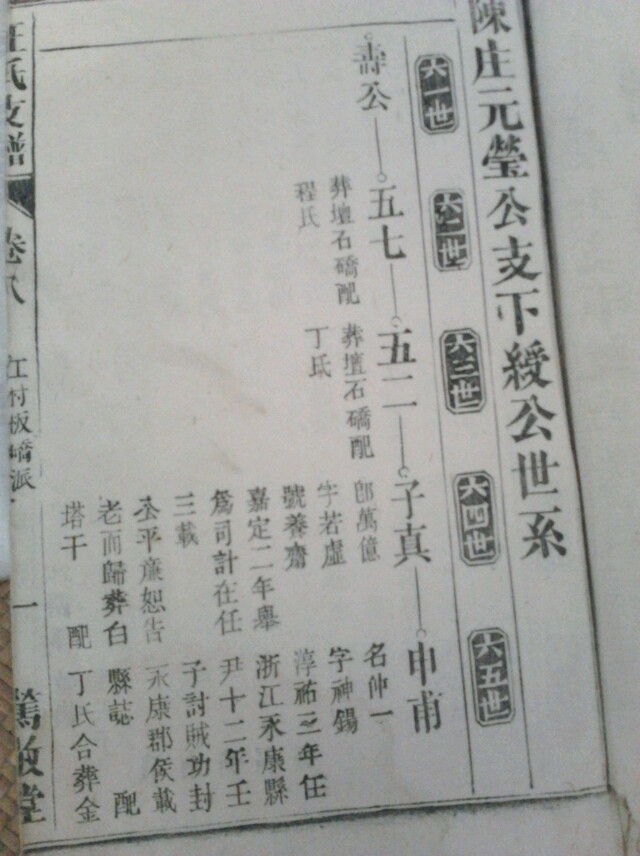 陳庄元瑩公支下綬公世系
六一世
六二世
六三世
六四世
六五世
壽公
五七
葬壇石礄配
程氏
五二
葬壇石礄配
丁氏
子真
郎萬億
字若虛
號養齋
嘉定二年舉
爲司計在任
三載
公平廉恕告
老而歸葬白
塔干 配
申甫
名仲一
字神錫
淳祐三年任
浙江永康縣
尹十二年壬
子討賊功封
永康郡侯載
縣誌 配
丁氏合葬金
汪氏支譜
卷八
江村板礄派
一
篤敬堂